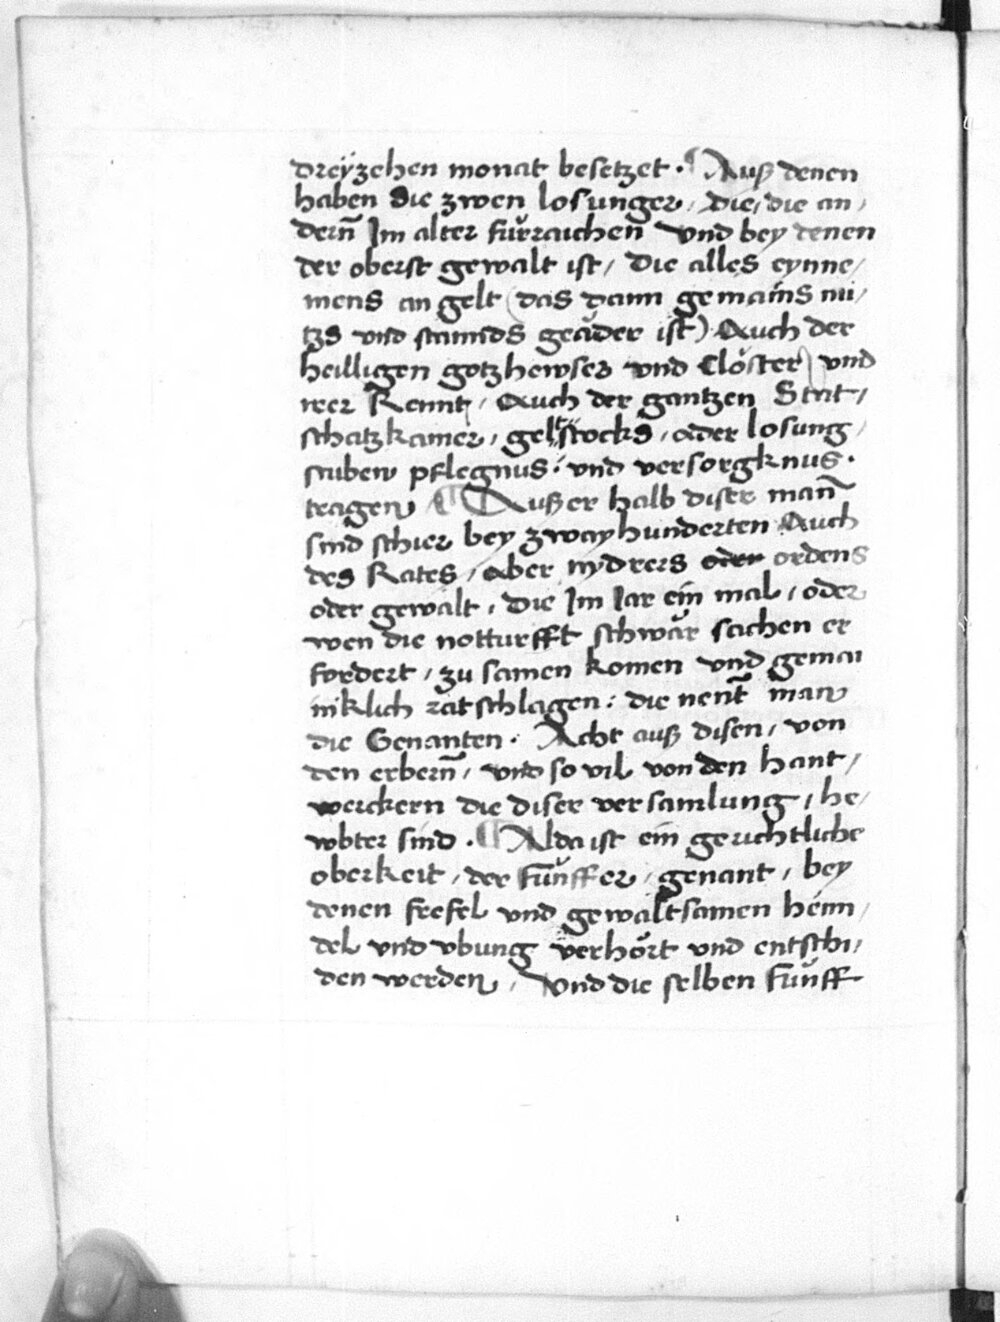 dreÿzehen monat besetzet · Auß denen
haben die zwen losunger / Die / die an /
dern̄ Im alter fürraichen vnd bey denen
der oberst gewalt ist / Die alles eynne /
mens an gelt (das dann gemains nu /
tzs vnd stannds geäder ist) Auch der
heilligen gotzhewser vnd Clöster) vnd
irer Rennt / Auch der gantzen Stat /
schatzkamer / geltstocks / oder losung /
stuben pflegnus : vnd versorgknus ·
tragen ¶ Außer halb diser man̄
sind schier bey zwayhunderten Auch
des Rates / Aber nydrers oder ordens
oder gewalt / Die Im Iar ein mal / oder
wen die notturfft schwär sachen er
fordert / zu samen komen vnd gemai
niklich ratschlagen : die nent̄ man
die Genanten · Acht auß disen / von
den erbern̄ / vnd so vil von den hant /
werckern die diser versamlung / he /
wbter sind · ¶ Alda ist ein gerichtliche
oberkeit / der Fünffer / genant / bey
denen frefel vnd gewaltsamen henn /
del vnd vbung verhört vnd entschi /
den werden / Vnd die selben Fünff